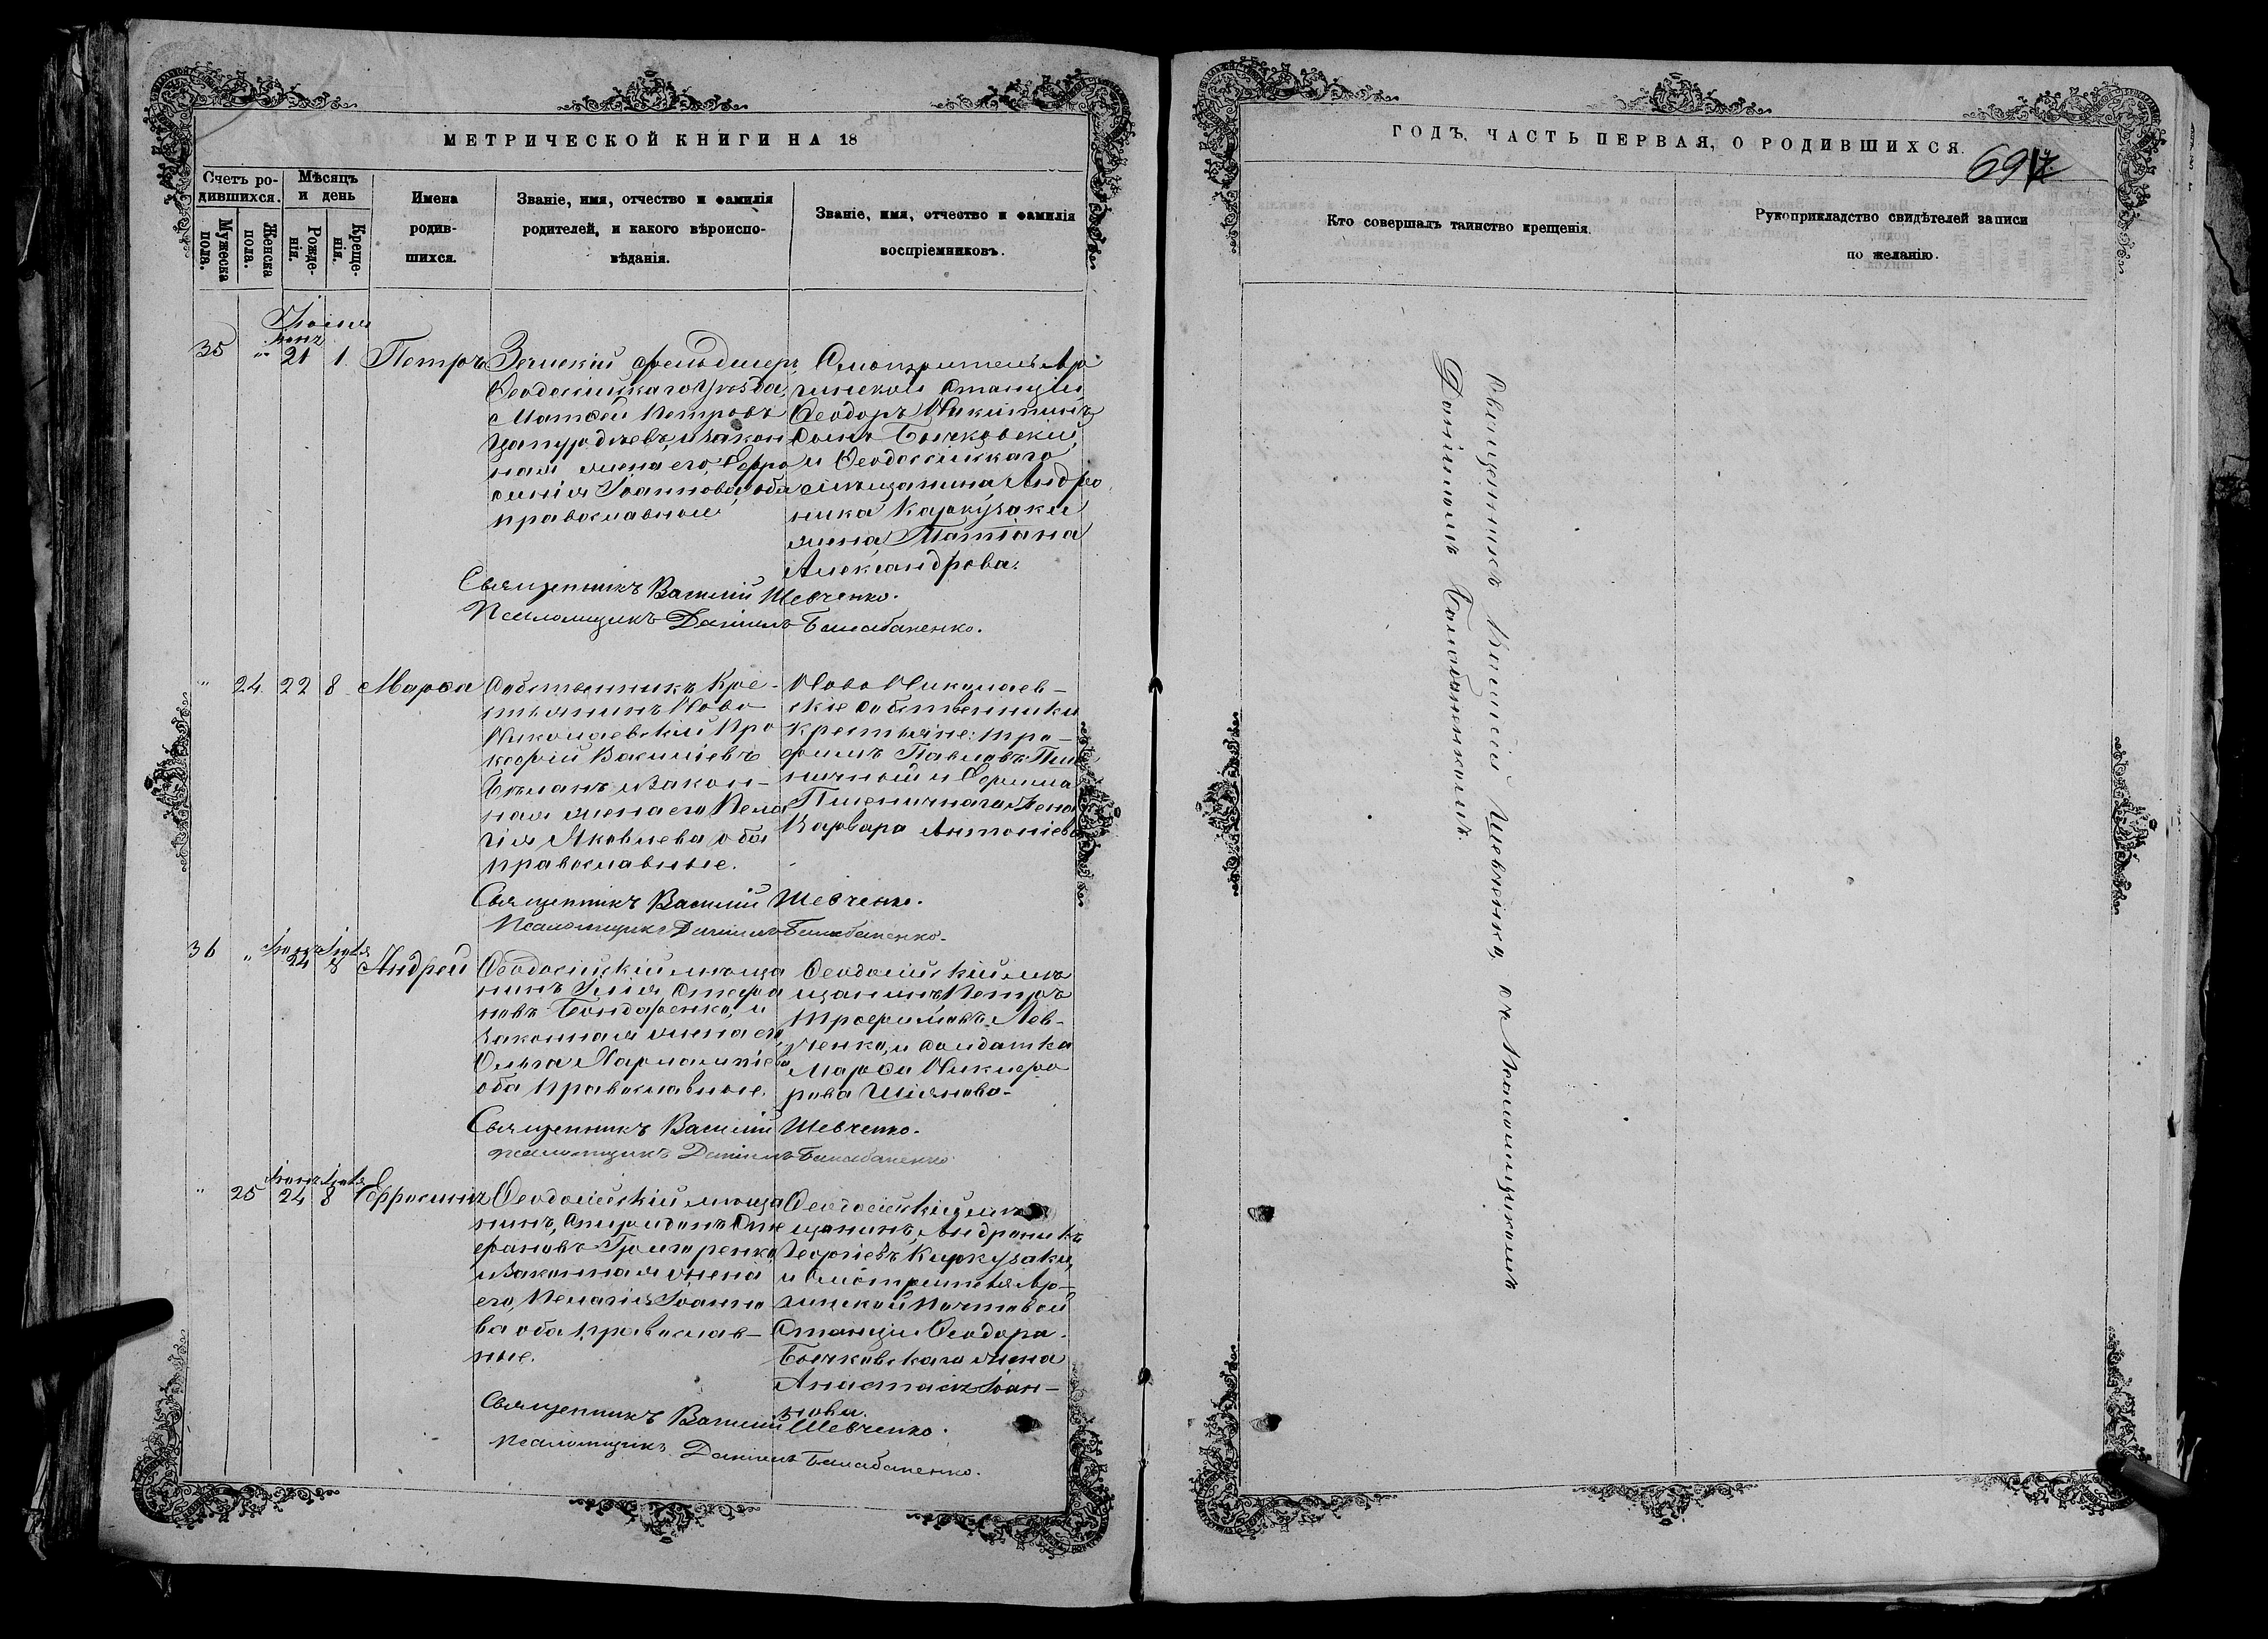 МЕТРИЧЕСКОЙ КНИГИ НА 18
Счетъ ро-
дившихся.
Мужеска
пола.
Женска
пола.
Мѣсяцъ
и день
Рожде-
нія.
Креще-
нія.
Имена
родив-
шихся.
Званіе, имя, отчество и фамилія
родителей, и какого вѣроиспо-
вѣданія.
Званіе, имя, отчество и фамилія
воспріемниковъ.
35 " 21 1 Петръ
Земскій фельдшеръ
Ѳеодосійскаго уѣзда,
Матѳей Петровъ
и закон
ная жена его, Евфро
синія Іоаннова, оба
православной
Смотритель Ар
гинской станціи
Ѳеодоръ Никитинъ
сынъ Бычковскій
и Ѳеодосійскаго
мѣщанина Андро
ника Каркузаки
жена Татіана
Александрова.
Священникъ Василій Шевченко.
Псаломщикъ Даніилъ Балабаненко.
" 24 22 8 Марѳа
Собственникъ Кре-
стьянинъ Ново
Николаевскій Про
кофій Василіевъ
и закон-
ная жена его Пела
гія Яковлева оба
православные.
Ново Николаев-
скіе собственники
крестьяне: Тро-
фимъ Павловъ Пше
ничный и Ефима
Пшеничнаго жена
Варвара Антоніева
Священникъ Василій Шевченко.
Псаломщикъ Даніилъ Балабаненко.
36 " 24 8 Андрей
Ѳеодосійскій мѣща
нинъ Илія Стефа
новъ Бондаренко, и
законная жена его
Ольга Харлампіева
оба православные.
Ѳеодосійскій мѣ
щанинъ, Петръ
Трофимовъ Лев-
ченко, и солдатка
Марѳа Никифо
рова Шіянова-
Священникъ Василій Шевченко.
псаломщикъ Даніилъ Балабаненко
" 25 24 8 Евфросинія
Ѳеодосійскій мѣща
нинъ, Спиридонъ Сте
фановъ Григоренко,
и законная жена
его, Пелагія Іоанно
ва оба православ-
ные.
Ѳеодосійскій мѣ
щанинъ, Андроникъ
Георгіевъ Каркузаки,
и смотрителя Ар-
гинской почтовой
станціи Ѳеодора
Бычковскаго жена
Анастасія Іоан-
нова.
Священникъ Василій Шевченко.
псаломщикъ Даніилъ Балабаненко.
ГОДЪ, ЧАСТЬ ПЕРВАЯ, О РОДИВШИХСЯ.
Кто совершалъ таинство крещенія.
Рукоприкладство свидѣтелей записи
по желанію.
Священникъ Василій Шевченко, съ псаломщикомъ
Даніиломъ Балабаненкомъ.